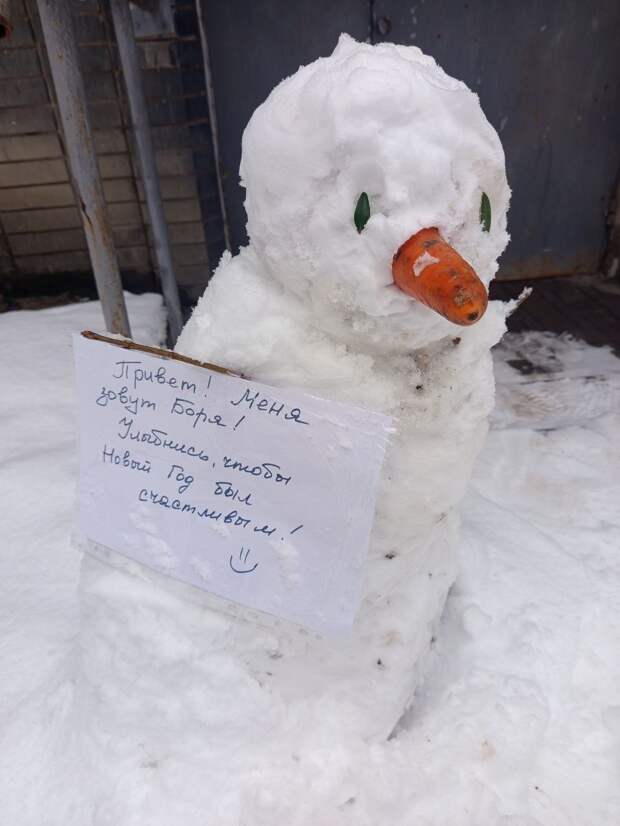 Привет! Меня
зовут Боря!
Улыбнись, чтобы
Новый Год был
счастливым!